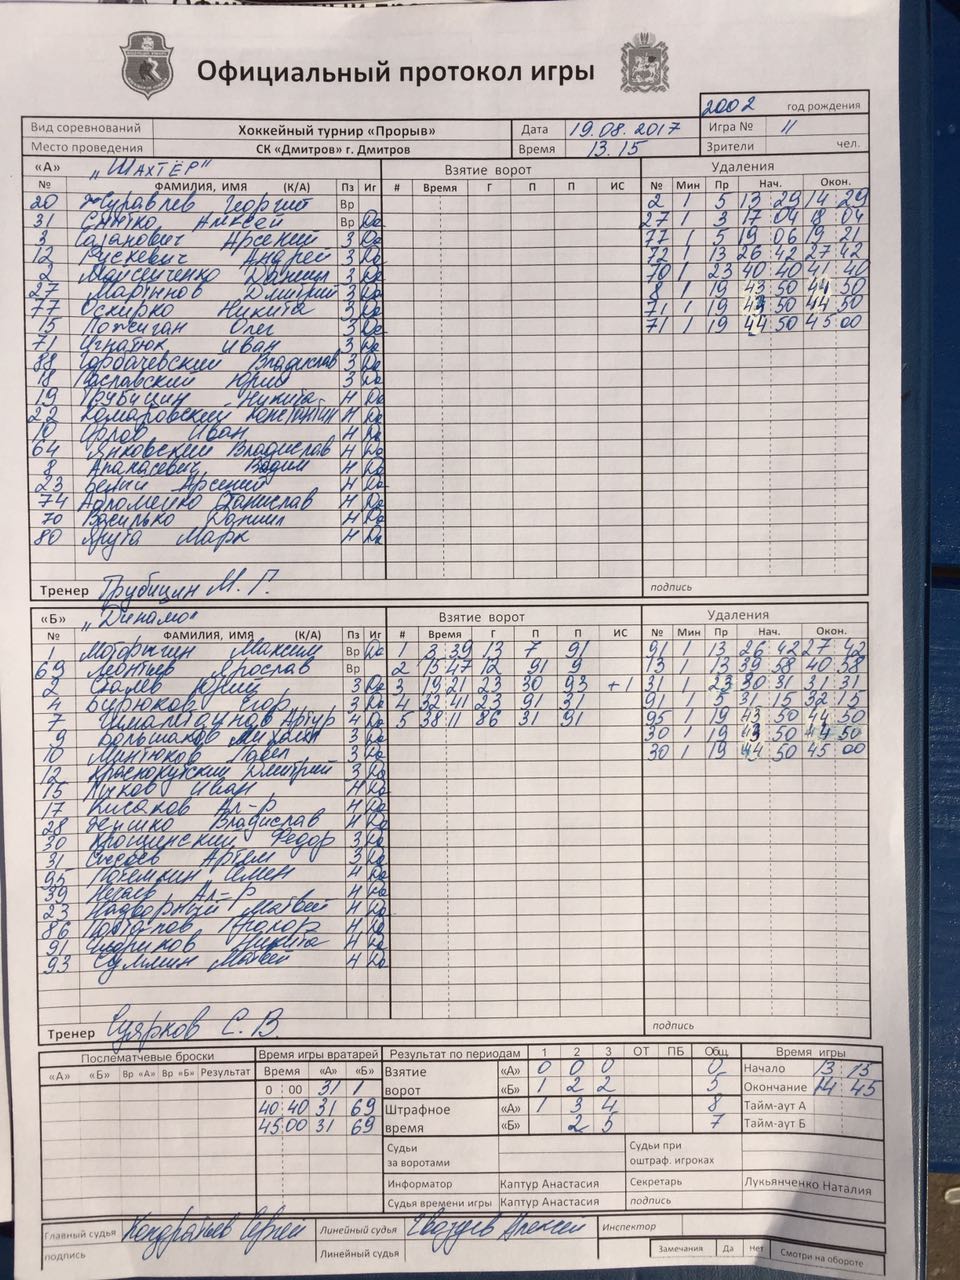 Официальный протокол игры
2002 год рождения
Вид соревнований Хоккейный турнир «Прорыв» Дата 19.08.2017 Игра № 11
Место проведения СК «Дмитров» г. Дмитров Время 13.15 Зрители чел.
«А» "Шахтёр" Взятие ворот Удаления
№ ФАМИЛИЯ, ИМЯ (К/А) Пз Иг # Время Г П П ИС № Мин Пр Нач. Окон.
20 Журавлев Георгий Вр 2 1 5 13 29 14 29
31 Алексей Вр Да 27 1 3 17 04 18 04
3 Сазанович Арсений З Да 77 1 5 19 06 19 21
12 Рускевич Андрей З Да 72 1 13 26 42 27 42
2 Моисейченко Даниил З Да 70 1 23 40 40 41 40
27 Мартинов Дмитрий З Да 8 1 19 43 50 44 50
77 Оскирко Никита З Да 71 1 19 43 50 44 50
15 Пожиган Олег З Да 71 1 19 44 50 45 00
71 Игнатюк Иван З Да
88 Горбачевский Владислав З Да
18 Пославский Юрий З Да
19 Трубицин Никита Н Да
22 Комаровский Константин Н Да
10 Орлов Иван Н Да
64 Янковский Владислав Н Да
8 Апанасевич Вадим Н Да
23 Белый Арсений Н Да
74 Станислав Н Да
70 Василько Даниил Н Да
80 Ярута Марк Н Да
Тренер Трубицин М. Г. подпись
«Б» "Динамо" Взятие ворот Удаления
№ ФАМИЛИЯ, ИМЯ (К/А) Пз Иг # Время Г П П ИС № Мин Пр Нач. Окон.
1 Мотрыгин Максим Вр Да 1 3 39 13 7 91 91 1 13 26 42 27 42
69 Леонтьев Ярослав Вр 2 15 47 12 91 9 13 1 13 39 58 40 58
2 Юрий З Да 3 19 21 23 30 93 +1 31 1 23 30 31 31 31
4 Бурюков Егор З Да 4 32 41 23 91 31 91 1 5 31 15 32 15
7 Артур Да 5 38 11 86 31 91 95 1 19 43 50 44 50
9 Большаков Михаил З Да 30 1 19 43 50 44 50
10 Минтюков Павел З Да 30 1 19 44 50 45 00
12 Краснокутский Дмитрий З Да
15 Лучков Иван Н Да
17 Кисаков Ал-р Н Да
28 Владислав Н Да
30 Крошинский Федор З Да
31 Артем З Да
95 Потемкин Семен Н Да
39 Ал-р Н Да
23 Надворный Матвей Н Да
86 Потапов Прохор Н Да
91 Никита Н Да
93 Матвей Н Да
Тренер Сиярков С. В. подпись
Послематчевые броски Время игры вратарей Результат по периодам 1 2 3 ОТ ПБ Общ. Время игры
«А» «Б» Вр «А» Вр «Б» Результат Время «А» «Б» Взятие ворот «А» 0 0 0 0 Начало 13 15
0 00 31 1 «Б» 1 2 2 5 Окончание 14 45
40 40 31 69 Штрафное время «А» 1 3 4 8 Тайм-аут А
45 00 31 69 «Б» 2 5 7 Тайм-аут Б
Судьи за воротами Судьи при оштраф. игроках
Информатор Каптур Анастасия Секретарь Лукьянченко Наталия
Судья времени игры Каптур Анастасия подпись
Главный судья Кондратьев Сергей Линейный судья Гвоздев Алексей Инспектор
подпись Линейный судья Замечания Да Нет Смотри на обороте